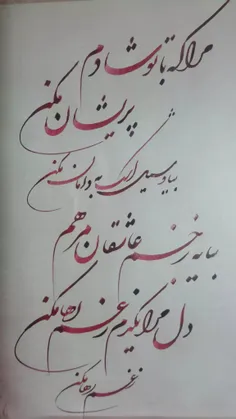 مرا که با تو شادم
پریشان مکن
بیا و سیل اشک به دامان مکن
بیا به زخم عاشقان مرهم
دل مرا نگیدم ز غم رها مکن
غم رها مکن